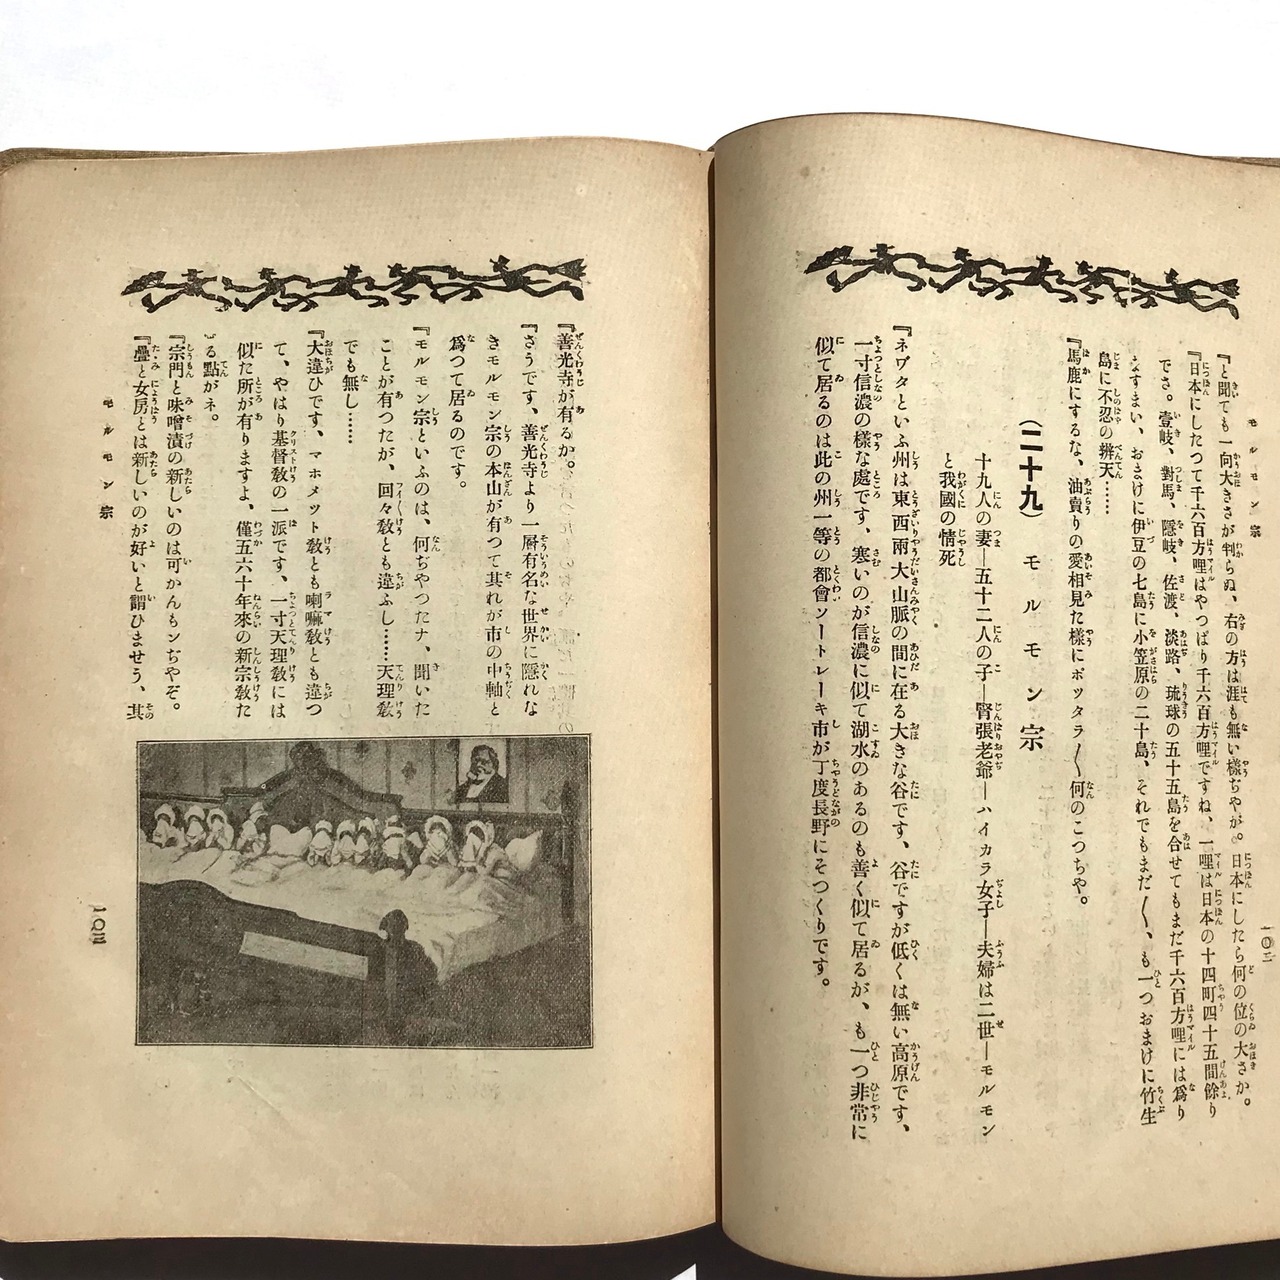 モルモン宗
一〇二
『と聞ても一向大きさが判らぬ、右の方は涯も無い樣ぢやが。日本にしたら何の位の大さか。
『日本にしたつて千六百方哩はやつぱり千六百方哩ですね、一哩は日本の十四町四十五間餘り
でさ。壹岐、對馬、隱岐、佐渡、淡路、琉球の五十五島を合せてもまだ千六百方哩には爲り
ますまい、おまけに伊豆の七島に小笠原の二十島、それでもまだ〳〵、も一つおまけに竹生
島に不忍の辨天……
『馬鹿にするな、油賣りの愛相見た樣にポツタラ〳〵何のこつちや。
(二十九) モルモン宗
十九人の妻―五十二人の子―腎張老爺―ハイカラ女子―夫婦は二世―モルモン
と我國の情死
『ネヷタといふ州は東西兩大山脈の間に在る大きな谷です、谷ですが低くは無い高原です、
一寸信濃の樣な處です、寒いのが信濃に似て湖水のあるのも善く似て居るが、も一つ非常に
似て居るのは此の州一等の都會ソートレーキ市が丁度長野にそつくりです。
『善光寺が有るか。
『さうです、善光寺より一層有名な世界に隱れな
きモルモン宗の本山が有つて其れが市の中軸と
爲つて居るのです。
『モルモン宗といふのは、何ぢやつたナ、聞いた
ことが有つたが、回々敎とも違ふし……天理敎
でも無し……
『大違ひです、マホメット敎とも喇嘛敎とも違つ
て、やはり基督敎の一派です、一寸天理敎には
似た所が有りますよ、僅五六十年來の新宗敎た
る點がネ。
『宗門と味噌漬の新しいのは可かんもンぢやぞ。
『疊と女房とは新しいのが好いと謂ひませう、其
モルモン宗
一〇三